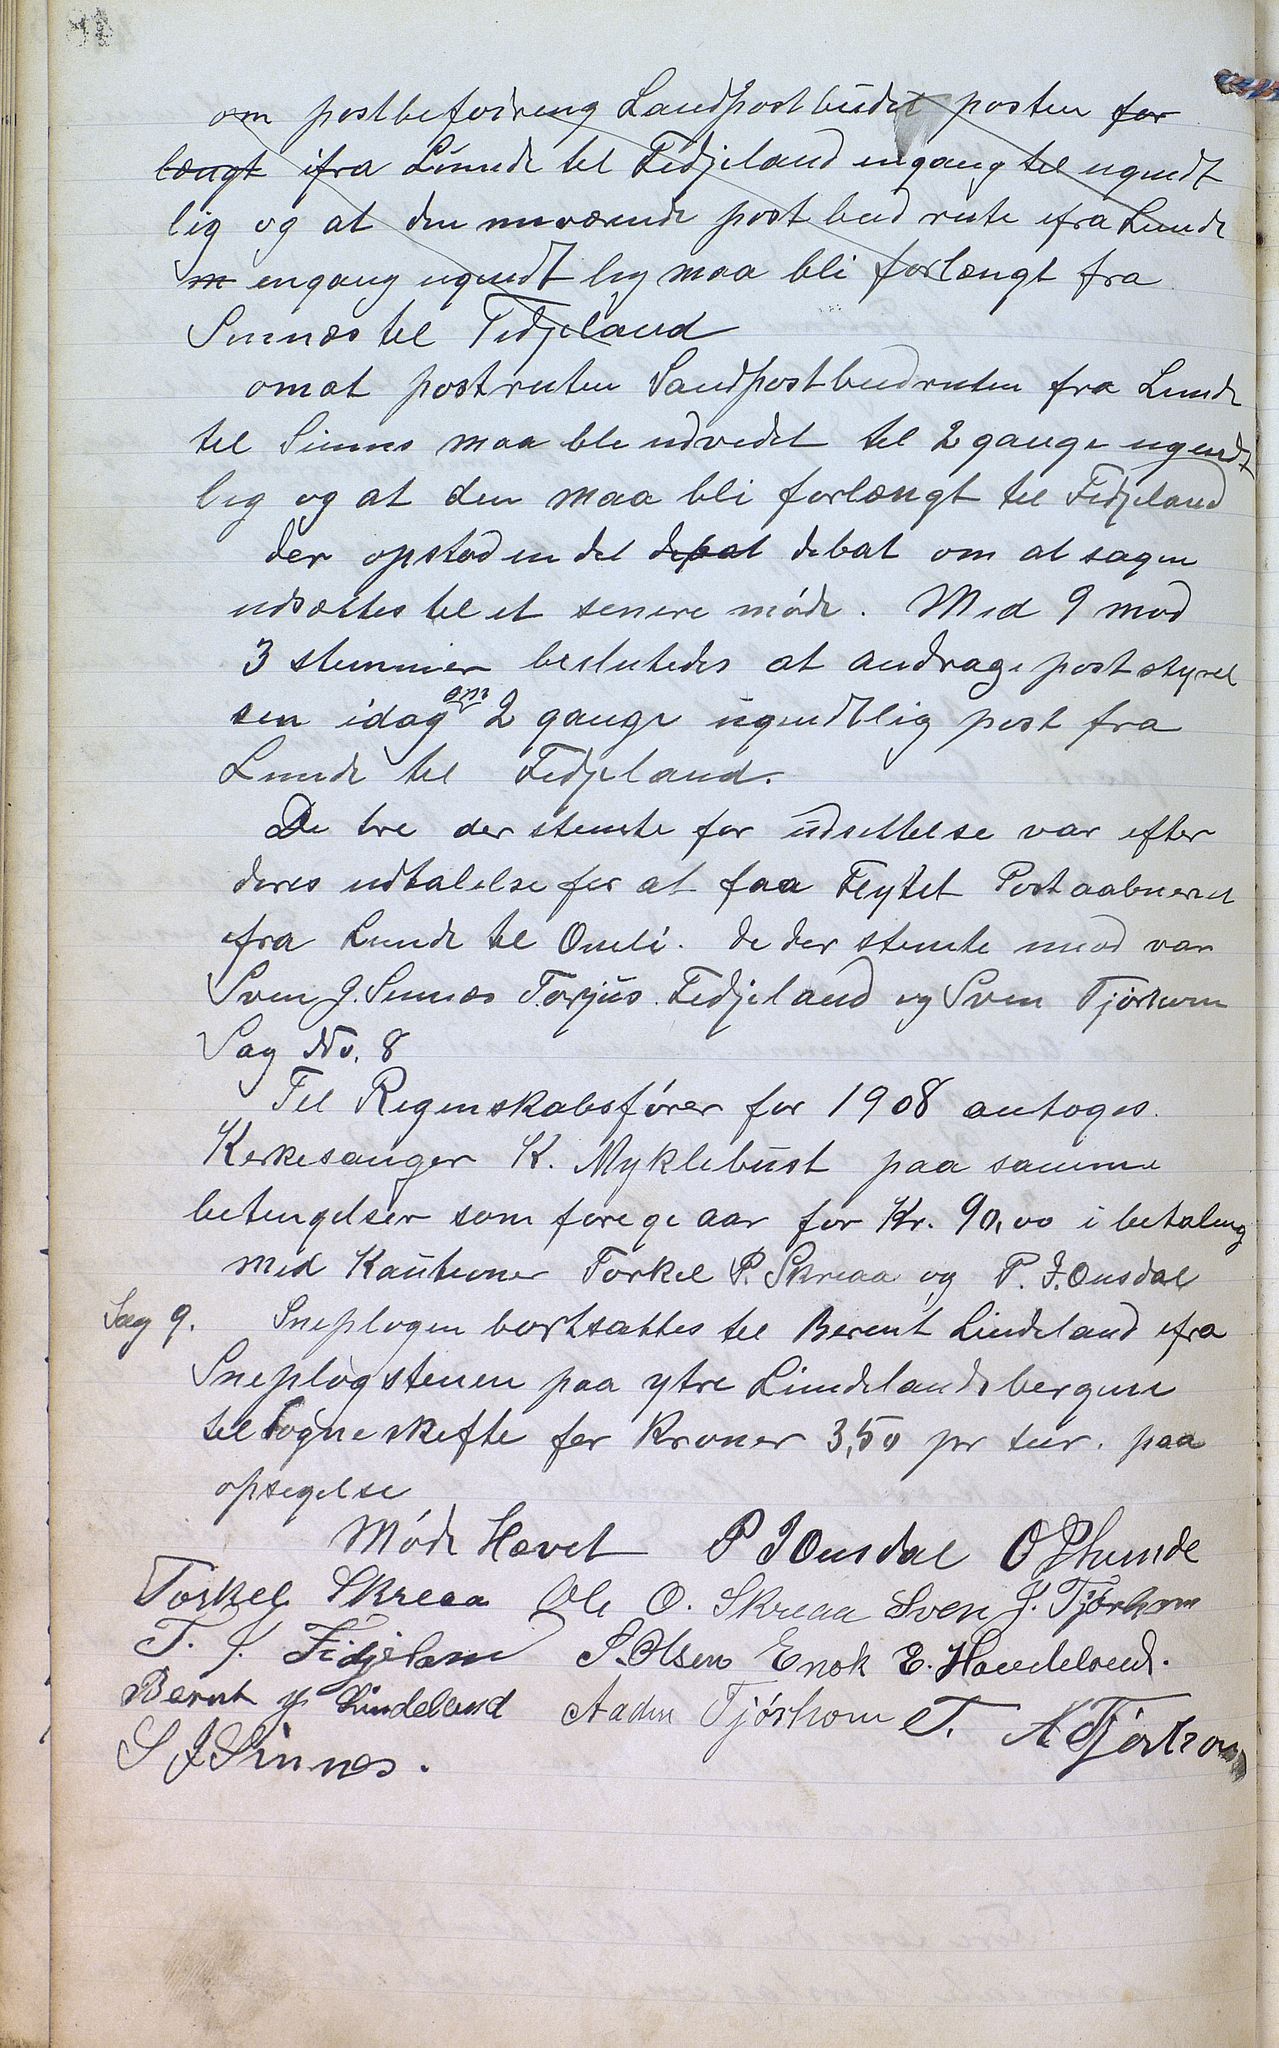 om postbefordreng Landpostbudet posten for
længt ifra Lunde til Fidjeland engang til ugendt
lig og at den nuværende postbudrute ifra Lunde
m engang ugendtlig maa bli forlængt fra
Sinnes til Fidjeland
omat postruten Landpostbudruten fra Lunde
til Sinnes maa bli udvedet til 2 gange ugendt
lig og at den maa bli forlængt til Fidjeland
der opstod en del debat debat om at sagen
udsættes til et senere møde. Med 9 mod
3 stemmer beslutedes at andrage poststyrel
sen idag om 2 gange ugendtlig post fra
Lunde til Fidjeland.
De tre der stemte for udsettelse var efter
deres udtalelse for at faa Flytet Postaabneret
fra Lunde til Omli. de der stemte mod var
Sven J. Sinnes Torjus Fidjeland og Sven Tjørhom
Sag No. 8
Til Regenskabsfører for 1908 antoges
Kerkesanger K. Myklebust paa samme
betengelser som forege aar for Kr. 90,00 i betaleng
med Kautioner Torkel P. Skreaa og P. J. Ousdal
Sag 9. Sneplogen bortsattes til Berent Lindeland ifra
Sneplogstenen paa ytre Lindelandsbergene
til Sogneskefte for Kroner 3,50 pr tur. paa
opsegelse
Møde Hævet P J Ousdal O P Lunde
Torkel Skreaa Ole O. Skreaa Sven J. Tjørhom
T. S. Fidjelan S. Olsen Enok E. Haudeland.
Bernt J Lindeland Aaden Tjørhom T. A Tjørhom
S J Sinnes.